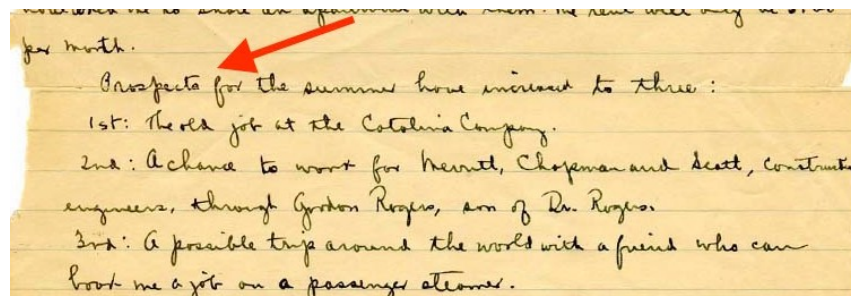 an apartment with them. The rent will only be
per month.
Prospects for the summer have increased to three :
1st: The old job at the Catalina Company.
2nd: A chance to work for Merritt, Chapman and Scott, construction
engineers, through Gordon Rogers, son of Dr. Rogers.
3rd: A possible trip around the world with a friend who can
book me a job on a passenger steamer.